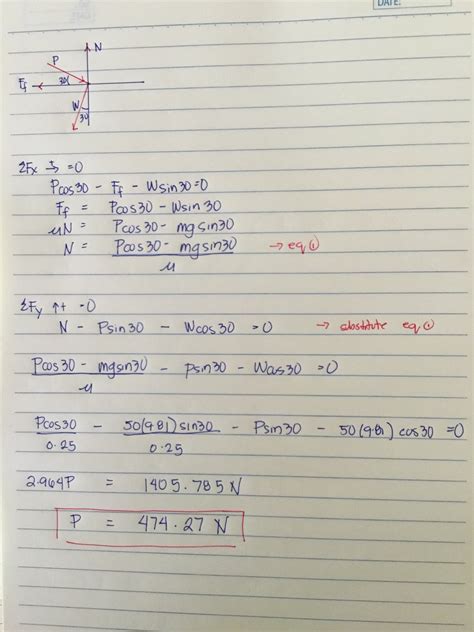 DATE:
N
P
Ff
30
W
30
ΣFx → = 0
Pcos30 - Ff - Wsin30 = 0
Ff = Pcos30 - Wsin30
μN = Pcos30 - mgsin30
N = Pcos30 - mgsin30 → eq ①
μ
ΣFy ↑+ = 0
N - Psin30 - Wcos30 = 0 → substitute eq ①
Pcos30 - mgsin30 - Psin30 - Wcos30 = 0
μ
Pcos30 - 50(9.81)sin30 - Psin30 - 50(9.81)cos30 = 0
0.25 0.25
2.964P = 1405.785 N
P = 474.27 N